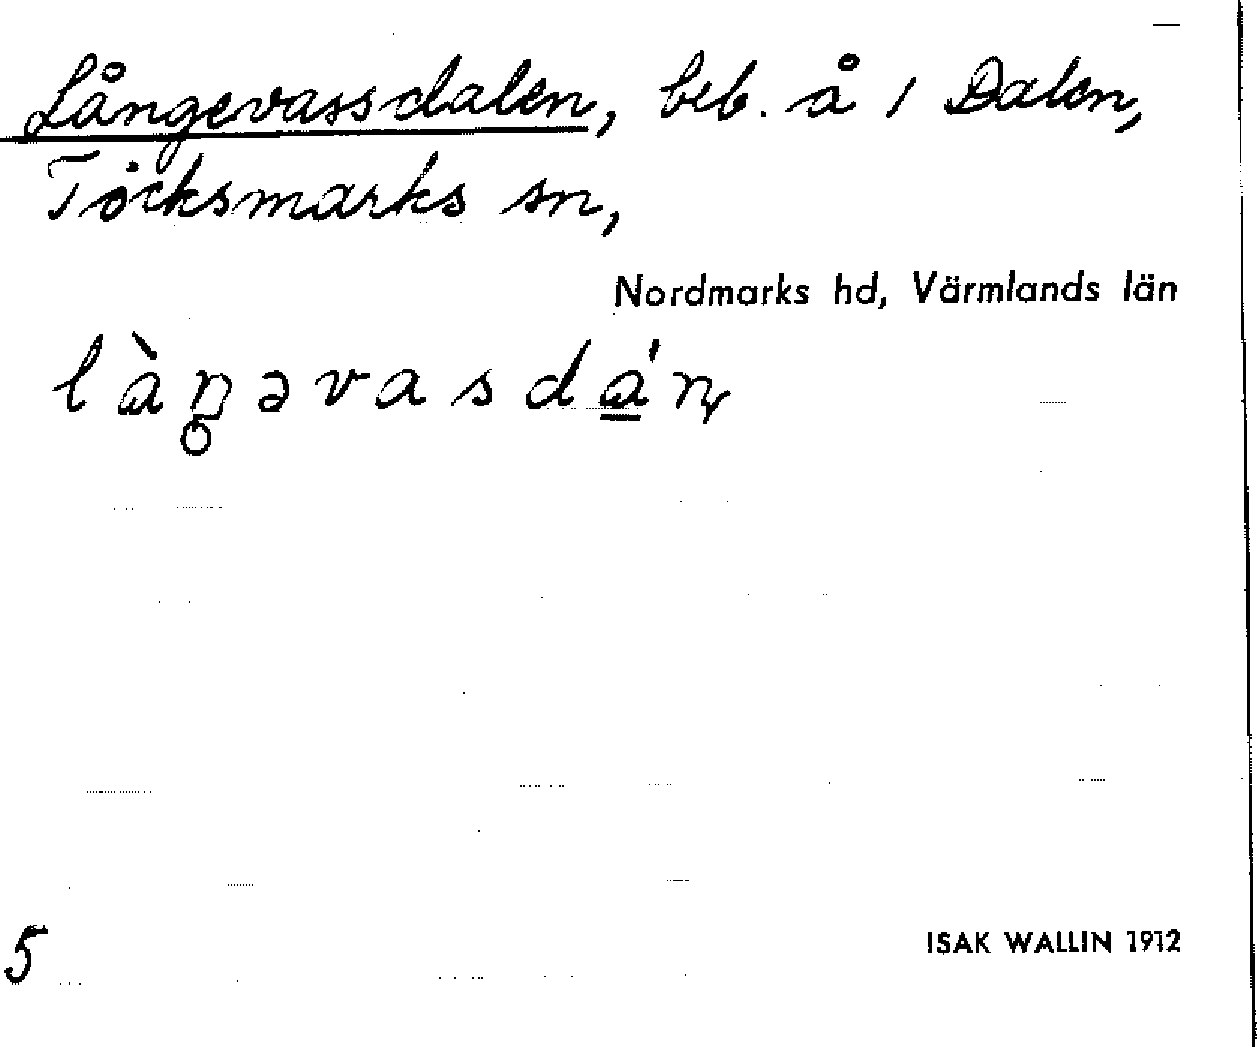 Långevassdalen, beb. å 1 Dalen,
Töcksmarks sn,
Nordmarks hd, Värmlands län
làŋəvasdá̱ɳ
5
ISAK WALLIN 1912